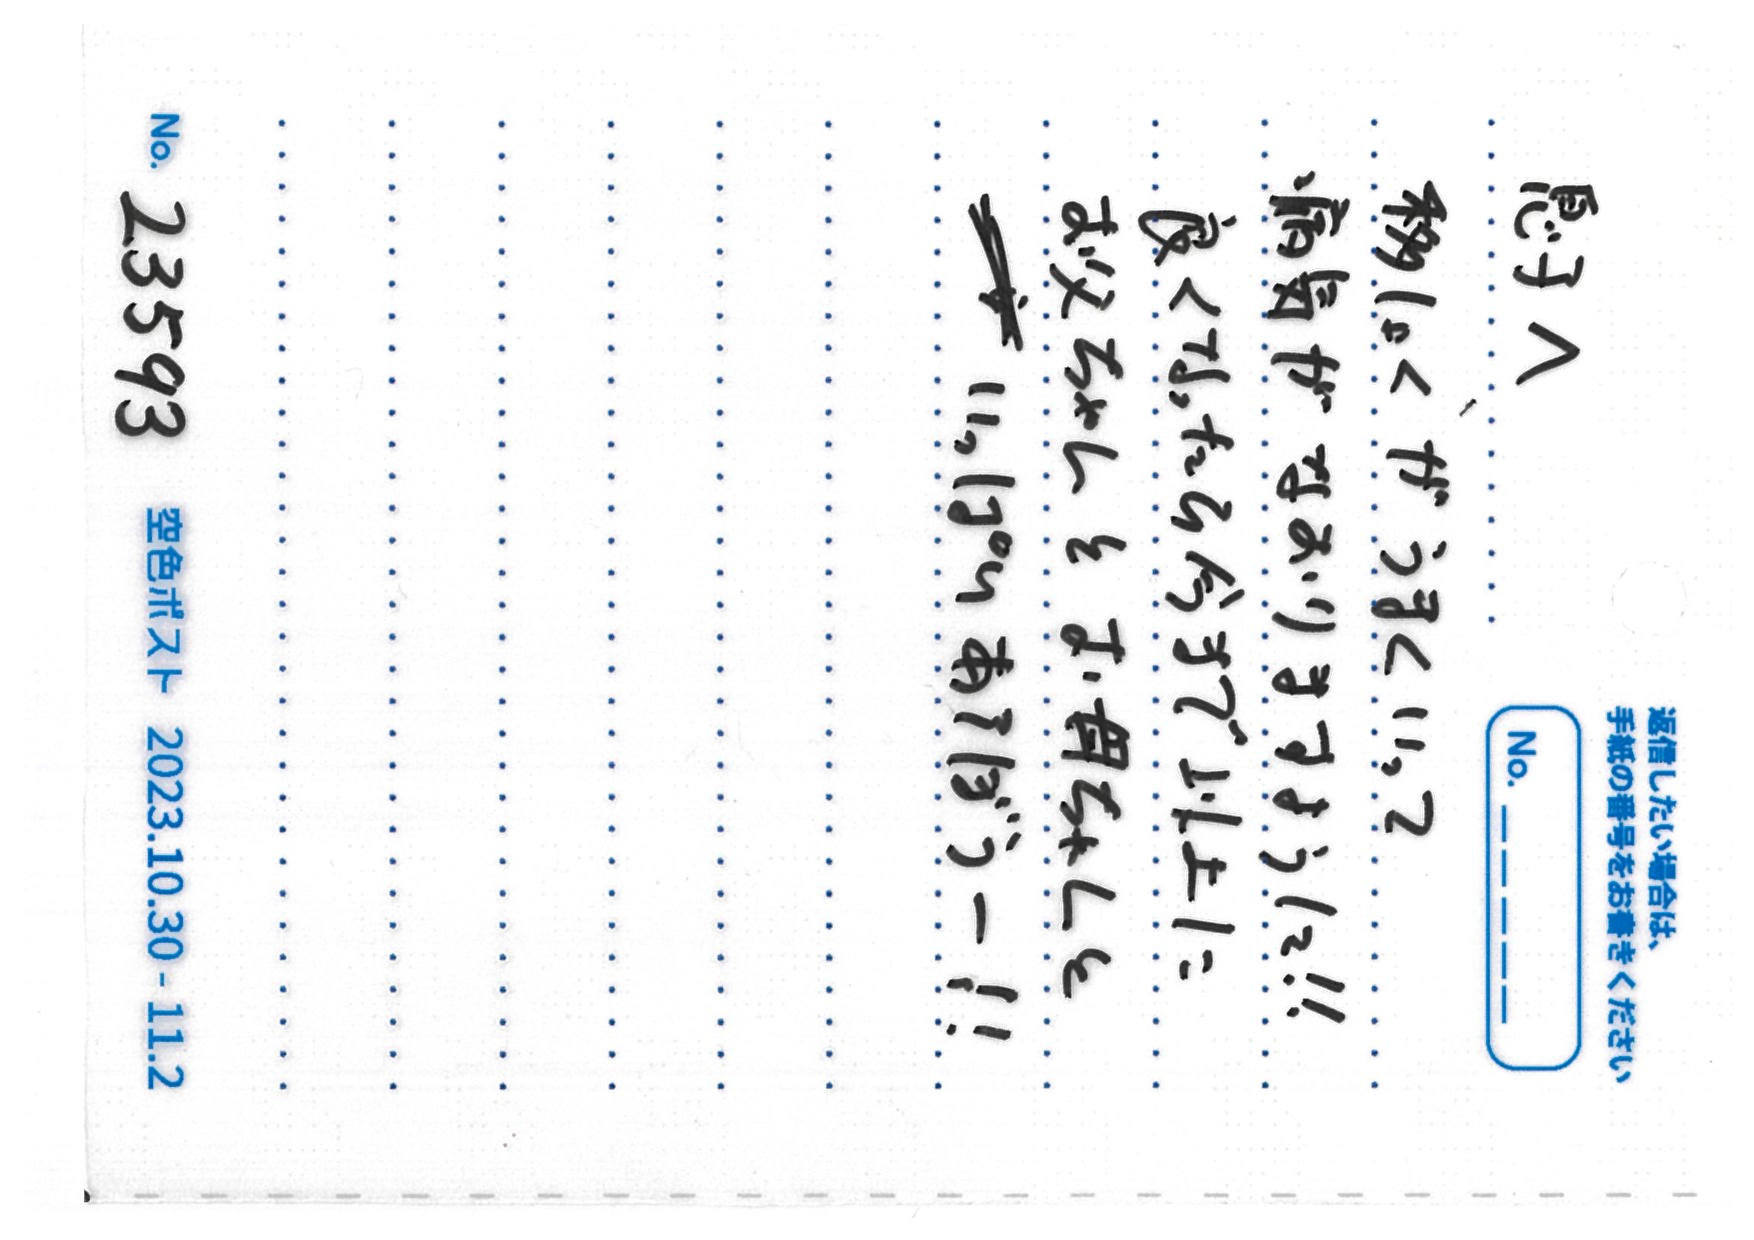 返信したい場合は、
手紙の番号をお書きください
No. _ _ _ _ _
息子へ
移しょくがうまくいって
病気がなおりますように!!
良くなったら今まで以上に
お父ちゃんとお母ちゃんと
いっぱいあそぼうー!!
No. 23593 空色ポスト 2023.10.30 - 11.2